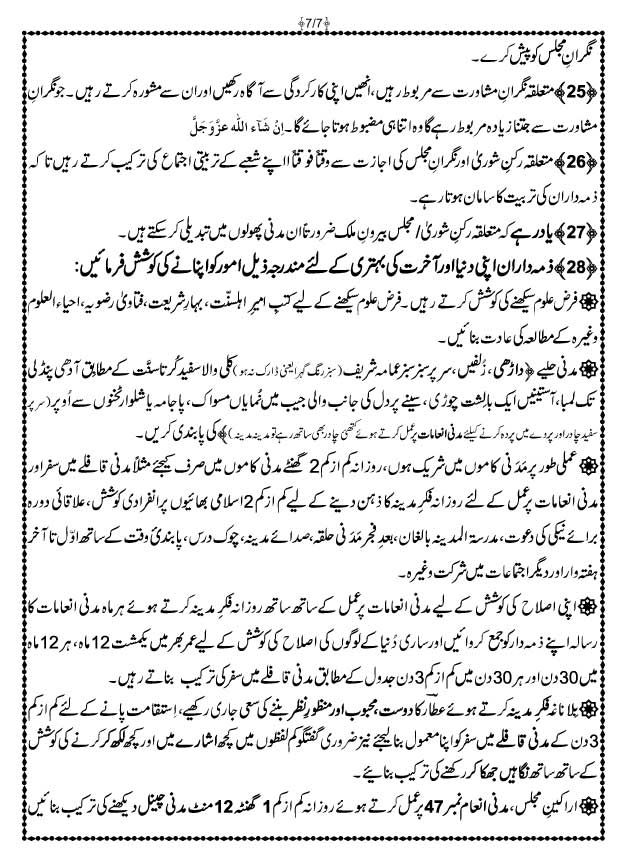 ﴿7/7﴾
نگرانِ مجلس کو پیش کرے۔
﴿25﴾ متعلقہ نگرانِ مشاورت سے مربوط رہیں، انھیں اپنی کارکردگی سے آگاہ رکھیں اور ان سے مشورہ کرتے رہیں۔ جو نگرانِ
مشاورت سے جتنا زیادہ مربوط رہے گا وہ اتنا ہی مضبوط ہوتا جائے گا۔ اِنْ شَآءَ اللّٰه عَزَّوَجَلَّ
﴿26﴾ متعلقہ رکنِ شوریٰ اور نگرانِ مجلس کی اجازت سے وقتاً فوقتاً اپنے شعبے کے تربیتی اجتماع کی ترکیب کرتے رہیں تاکہ
ذمہ داران کی تربیت کا سامان ہوتا رہے۔
﴿27﴾ یاد رہے کہ متعلقہ رکنِ شوریٰ/مجلس بیرونِ ملک ضرورتاً ان مدنی پھولوں میں تبدیلی کر سکتے ہیں۔
﴿28﴾ ذمہ داران اپنی دنیا اور آخرت کی بہتری کے لئے مندرجہ ذیل امور کو اپنانے کی کوشش فرمائیں:
فرض علوم سیکھنے کی کوشش کرتے رہیں۔ فرض علوم سیکھنے کے لیے کتبِ امیرِ اہلسنّت، بہارِ شریعت، فتاویٰ رضویہ، احیاء العلوم
وغیرہ کے مطالعہ کی عادت بنائیں۔
مدنی حلیے ﴿داڑھی، زُلفیں، سر پر سبز سبز عمامہ شریف (سبز رنگ گہرا یعنی ڈارک نہ ہو) کلی والا سفید کُرتا سنّت کے مطابق آدھی پنڈلی
تک لمبا، آستینیں ایک بالشت چوڑی، سینے پر دل کی جانب والی جیب میں نُمایاں مسواک، پاجامہ یا شلوار ٹخنوں سے اُوپر (سر پر
سفید چادر اور پردے میں پردہ کرنے کیلئے مدنی انعامات پر عمل کرتے ہوئے کتھئی چادر بھی ساتھ رہے تو مدینہ مدینہ)﴾ کی پابندی کریں۔
عملی طور پر مَدَنی کاموں میں شریک ہوں، روزانہ کم از کم 2 گھنٹے مدنی کاموں میں صرف کیجئے مثلاً مدنی قافلے میں سفر اور
مدنی انعامات پر عمل کے لئے روزانہ فکرِ مدینہ کا ذہن دینے کے لیے کم از کم 2 اسلامی بھائیوں پر انفرادی کوشش، علاقائی دورہ
برائے نیکی کی دعوت، مدرسۃ المدینہ بالغان، بعدِ فجر مَدَنی حلقہ، صدائے مدینہ، چوک درس، پابندیٔ وقت کے ساتھ اوّل تا آخر
ہفتہ وار اور دیگر اجتماعات میں شرکت وغیرہ۔
اپنی اصلاح کی کوشش کے لیے مدنی انعامات پر عمل کے ساتھ ساتھ روزانہ فکرِ مدینہ کرتے ہوئے ہر ماہ مدنی انعامات کا
رسالہ اپنے ذمہ دار کو جمع کروائیں اور ساری دُنیا کے لوگوں کی اصلاح کی کوشش کے لیے عمر بھر میں یکمشت 12 ماہ، ہر 12 ماہ
میں 30 دن اور ہر 30 دن میں کم از کم 3 دن جدول کے مطابق مدنی قافلے میں سفر کی ترکیب بناتے رہیں۔
بلاناغہ فکرِ مدینہ کرتے ہوئے عطّار کا دوست، محبوب اور منظورِ نظر بننے کی سعی جاری رکھیے، اِستقامت پانے کے لئے کم از کم
3 دن کے مدنی قافلے میں سفر کو اپنا معمول بنا لیجئے نیز ضروری گفتگو کم لفظوں میں کچھ اشارے میں اور کچھ لکھ کر کرنے کی کوشش
کے ساتھ ساتھ نگاہیں جھکا کر رکھنے کی ترکیب بنائیے۔
اراکینِ مجلس، مدنی انعام نمبر 47 پر عمل کرتے ہوئے روزانہ کم از کم 1 گھنٹہ 12 منٹ مدنی چینل دیکھنے کی ترکیب بنائیں